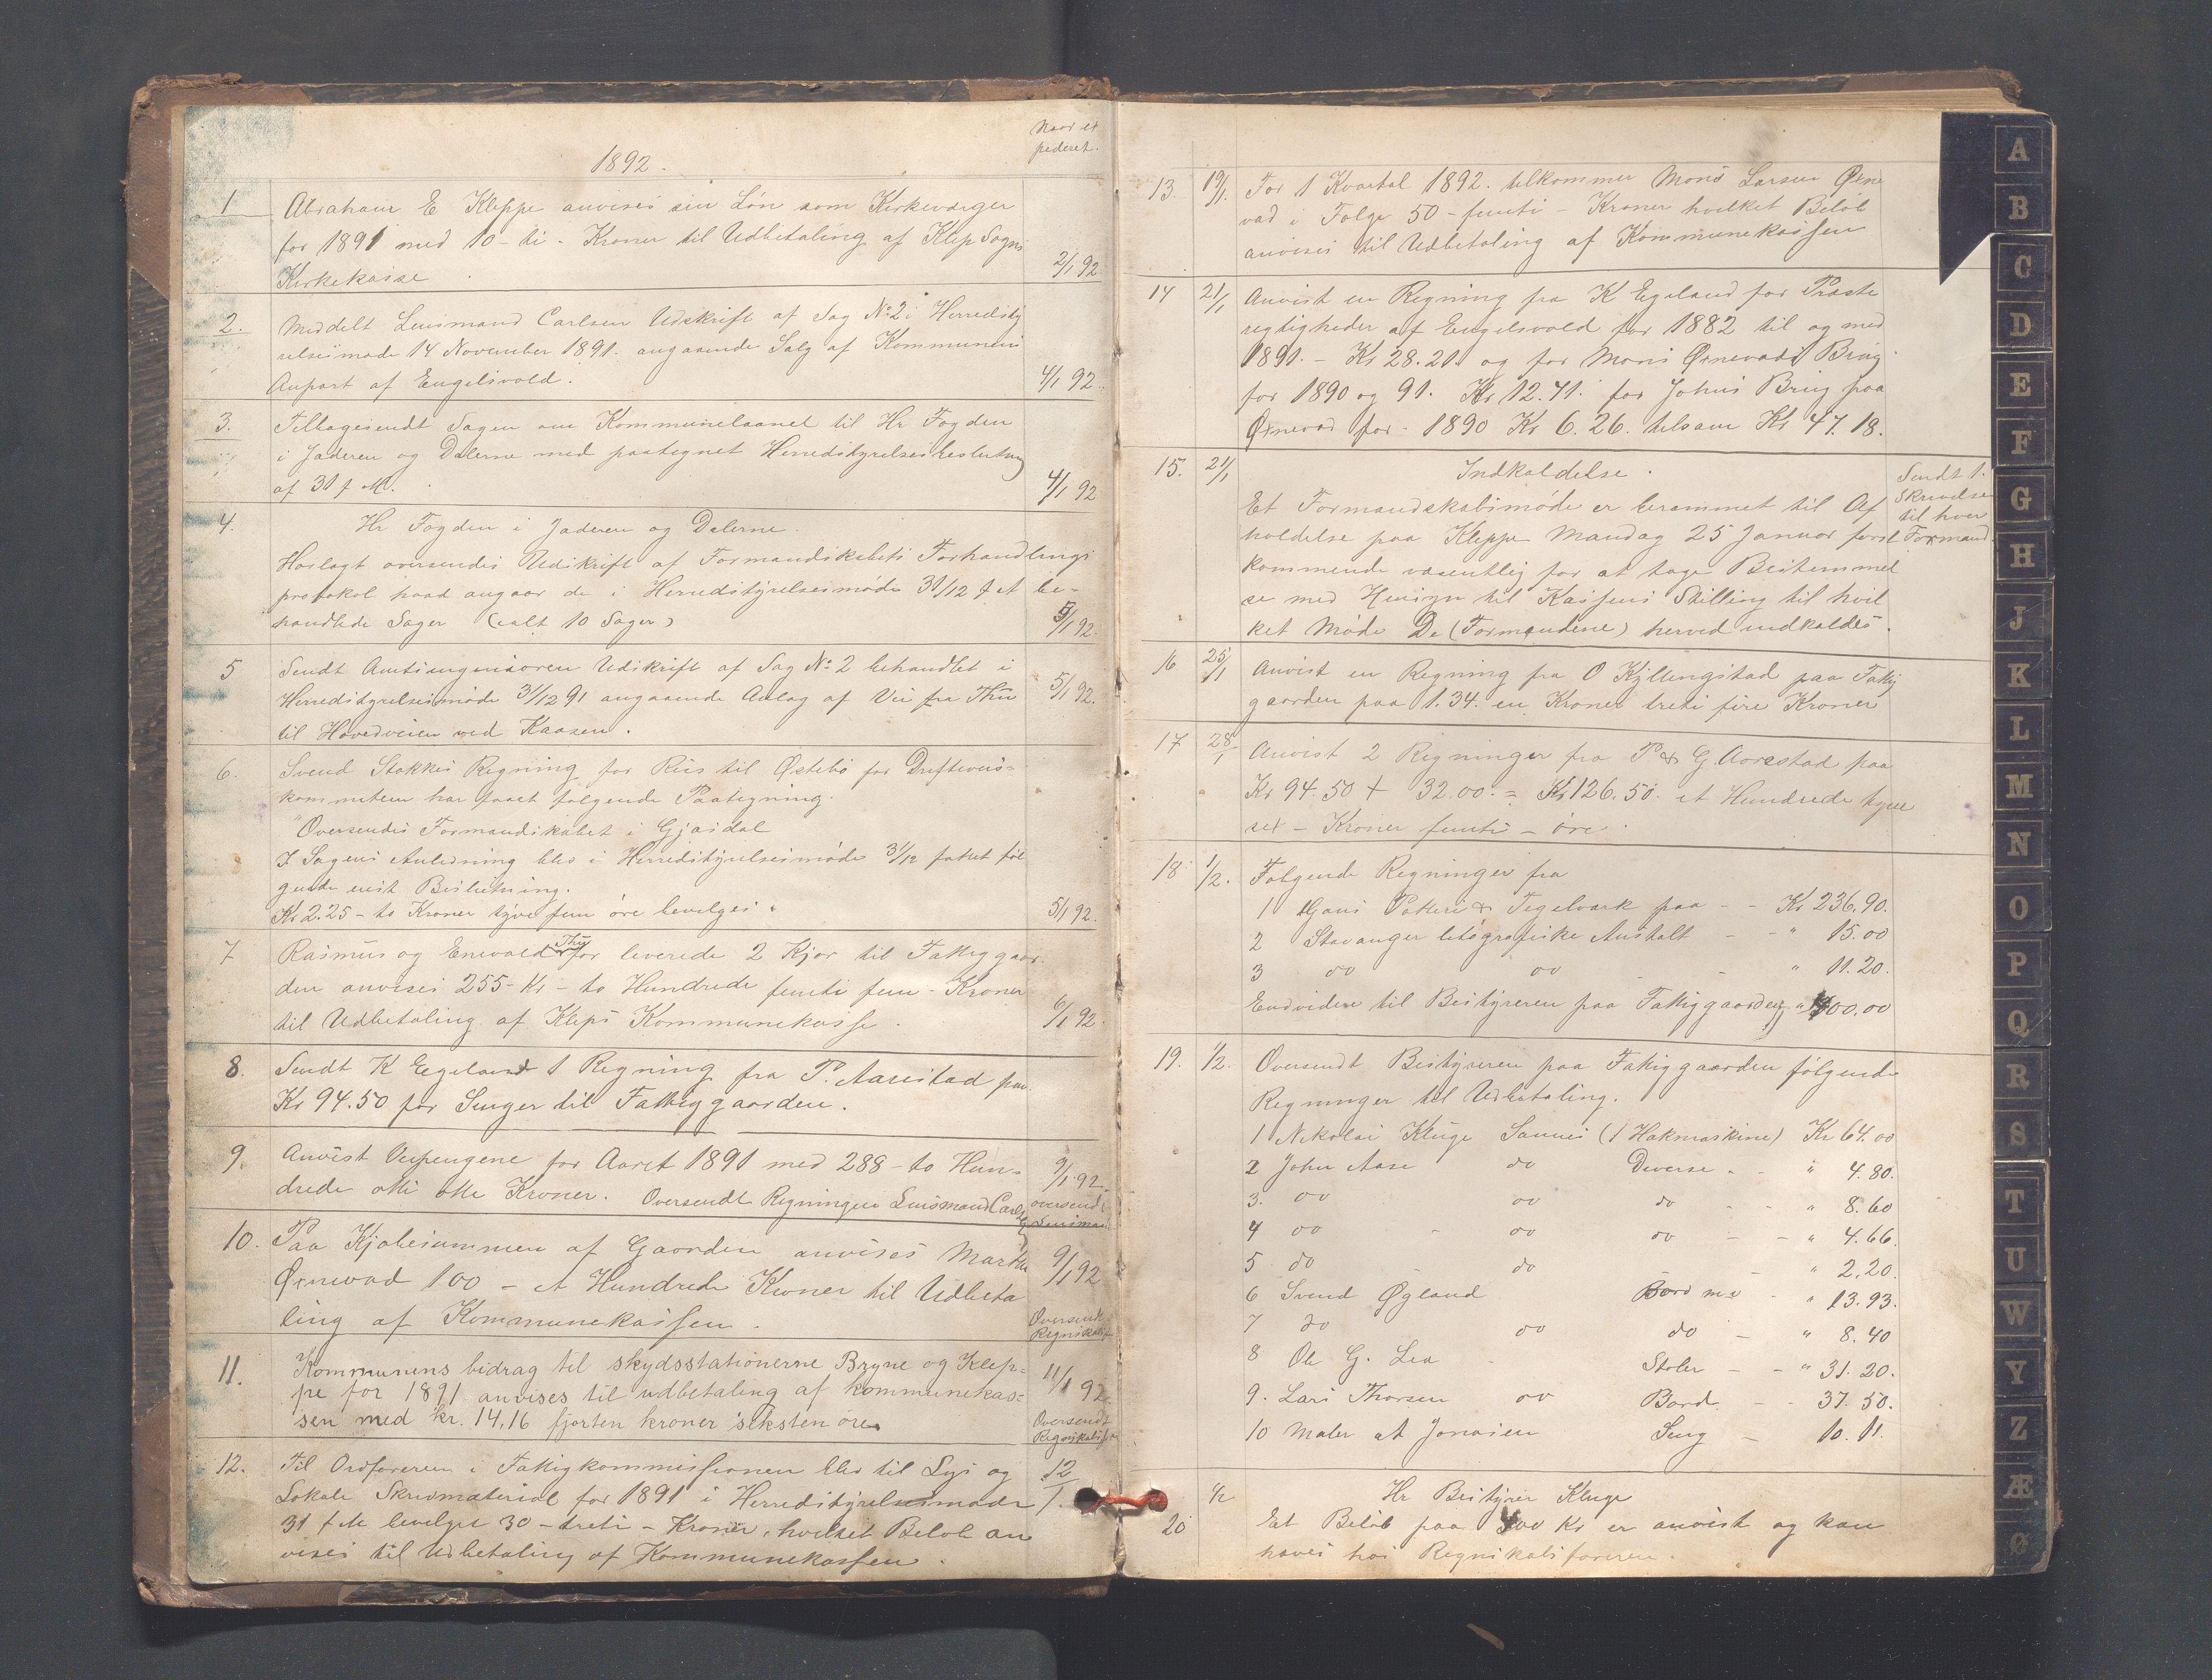 Naar ex
pederet.
1892.
1 Abraham E Kleppe anvises sin Løn som Kirkeværger
for 1891 med 10 - ti - Kroner til Udbetaling af Klep Sogns
Kirkekasse
2/1 92
2. Meddelt Lensmand Carlsen Udskrift af Sag No 2 i Herredsty
relsesmøde 14 November 1891. angaaende Salg af Kommunens
Anpart af Engelsvold.
4/1 92
3. Tilbagesendt Sagen om Kommunelaanet til Hr Fogden
i Jæderen og Dalerne med paategnet Herredsstyrelsesbeslutning
af 31 f M.
4/1 92
4. Hr Fogden i Jæderen og Dalerne.
Hoslagt oversendes Udskrift af Formandskabets Forhandlings
protokol hvad angaar de i Herredsstyrelsesmøde 31/12 f A be-
handlede Sager (ialt 10 Sager)
5/1 92.
5 Sendt Amtsingeniøren Udskrift af Sag No 2 behandlet i
Herredsstyrelsesmøde 31/12 91 angaaende Anlæg af Vei fra Thu
til Hovedveien ved Kaasen.
5/1 92.
6. Svend Stokkes Regning for Reis til Østebø for Drifteveis-
komiteen har faaet følgende Paategning.
"Oversendes Formandskabet i Gjæsdal
I Sagens Anledning blev i Herredsstyrelsesmøde 31/12 fattet føl
gende enst. Beslutning.
Kr 2.25 - to Kroner tyve fem øre bevilges.
5/1 92.
7 Rasmus og Enevold Thu for leverede 2 Kjør til Fattiggaar
den anvises 255 - Kr - to Hundrede femti fem - Kroner
til Udbetaling af Kleps Kommunekasse.
6/1 92.
8. Sendt K Egeland 1 Regning fra P. Aarestad paa
Kr 94.50 for Senger til Fattiggaarden.
9. Anvist Veipengene for Aaret 1891 med 288 - to Hun-
drede otti otte Kroner. Oversendt Regningen Lensmand Carlsen
9/1 92.
oversendt
Lensman
10. Paa Kjøbesummen af Gaarden anvises Martin
Ørnevad 100 - et Hundrede Kroner til Udbeta
ling af Kommunekassen.
9/1 92
Oversendt
Regnskabsf
11. Kommunens bidrag til skydsstationerne Bryne og Klep-
pe for 1891 anvises til udbetaling af kommunekas-
sen med kr. 14,16 fjorten kroner seksten øre
11/1 92
Oversendt
Regnskabsf
12. Til Ordføreren i Fattigkommissionen blev til Lys og
Lokale Skrivmaterial for 1891 i Herredsstyrelsesmøde
31 f M bevilget 30 - treti - Kroner, hvilket Beløb an
vises til Udbetaling af Kommunekassen.
12/1.
13. 19/1. For 1 Kvartal 1892. tilkommer Mons Larsen Ørne
vad i Følge 50 - femti - Kroner hvilket Beløb
anvises til Udbetaling af Kommunekassen
14 21/1 Anvist en Regning fra K Egeland for Præste
regtigheder af Engelsvold for 1882 til og med
1891. - Kr 28.21 og for Mons Ørnevads Brug
for 1890 og 91. Kr 12.71. for Johns Brug paa
Ørnevad for - 1890 Kr 6.26. tilsam Kr 47.18.
15. 21/1 Indkaldelse.
Et Formandskabsmøde er berammet til Af
holdelse paa Kleppe Mandag 25 Januar først
kommende væsentlig for at tage Bestemmel
se med Hensyn til Kassens Stilling til hvil
ket Møde De (Formændene) herved indkaldes.
Sendt 1.
Skrivelse
til hver
Formand.
16 25/1 Anvist en Regning fra O Kyllingstad paa Fattig
gaarden paa 1.34. en Kroner treti fire Kroner
17 28/1 Anvist 2 Regninger fra P & G. Aarestad paa
Kr 94.50 + 32.00. = Kr 126.50. et Hundrede tyve
sex - Kroner femti - øre.
18 1/2. Følgende Regninger fra
1 Gans Potteri & Tegelværk paa - - Kr 236.90.
2 Stavanger litografiske Anstalt - - " 15.00
3 do do - - " 11.20.
Endvidere til Bestyreren paa Fattiggaarden " 400.00
19. 1/2. Oversendt Bestyreren paa Fattiggaarden følgende
Regninger til Udbetaling.
1 Nikolai Kluge Sannes (1 Hakmaskine) Kr 64.00
2 John Aase do Diverse - - " 4.80.
3. do do do - - " 8.60
4 do - do do - - " 4.66.
5 do do - - " 2.20.
6 Svend Øgland Bord m v - " 13.93.
7 do do do - " 8.40
8 Ole G. Lea - Stoler - - " 31.20.
9. Lars Thorsen do Bord - - 37.50.
10 Maler A Jonasen Seng - 10.11.
20 1/2 Hr Bestyrer Kluge
Et Beløb paa 400 Kr er anvist og kan
haves hos Regnskabsføreren.
A
B
C
D
E
F
G
H
J
K
L
M
N
O
P
Q
R
S
T
U
W
Y
Z
Æ
Ø